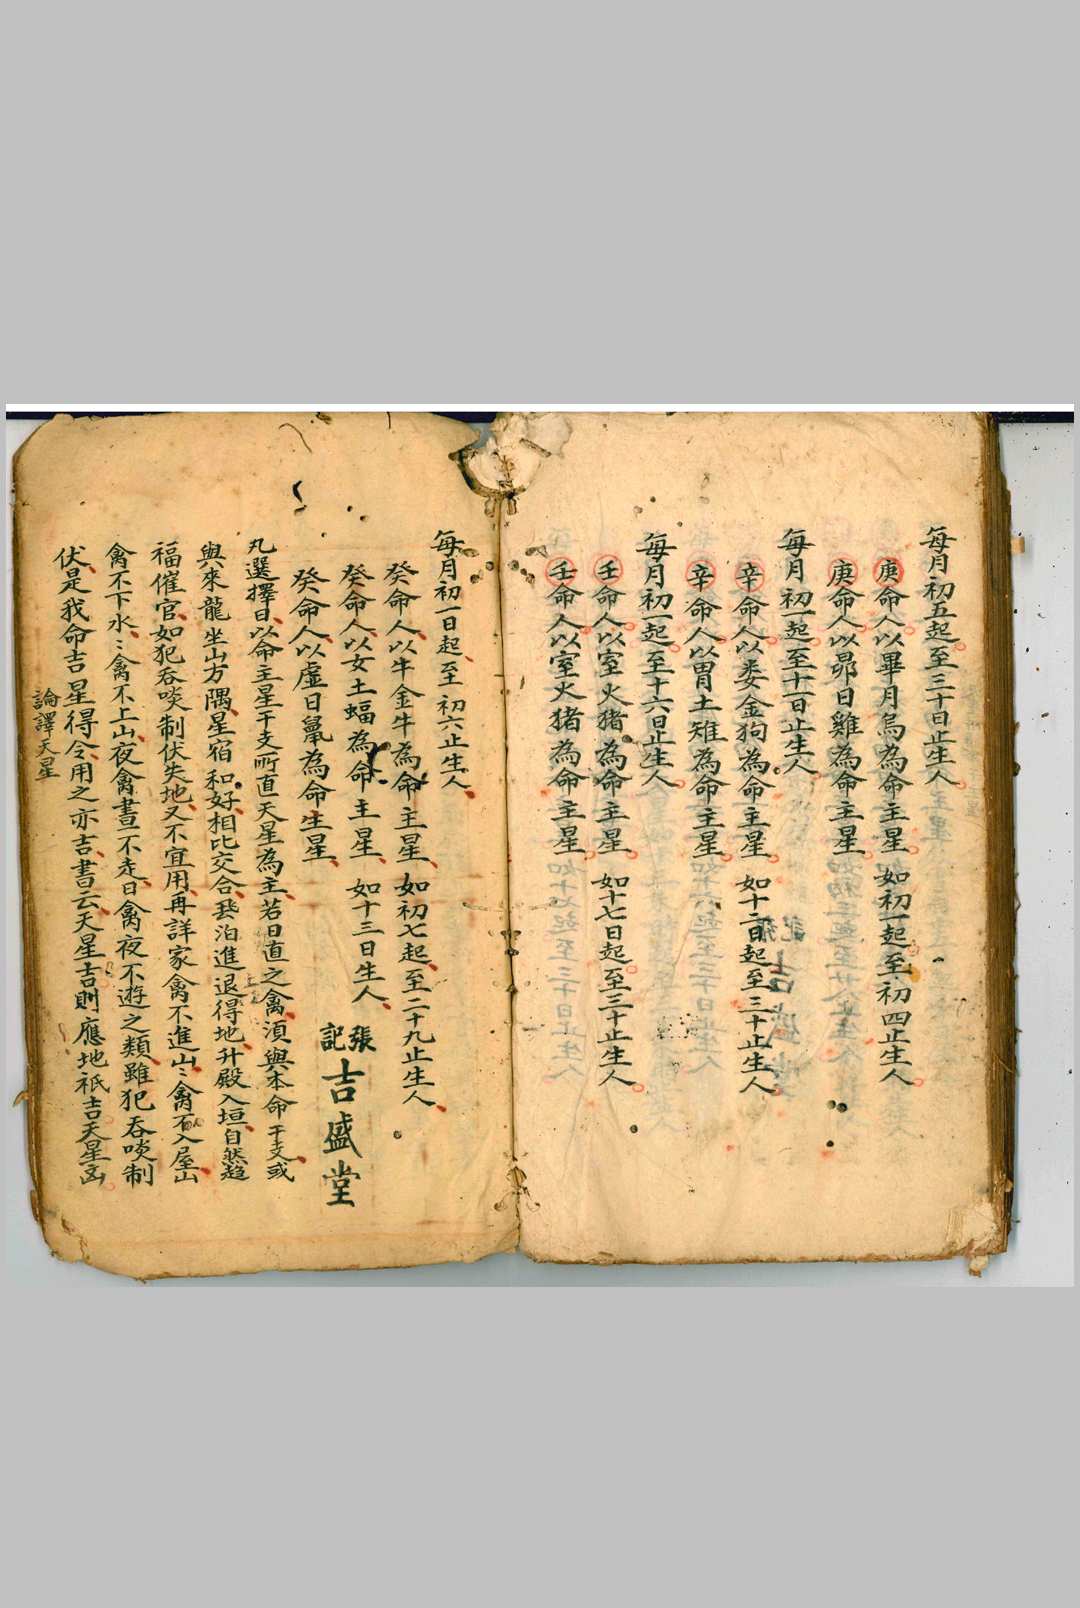 每月初五起至三十日止生人
庚命人以畢月烏為命主星 如初一起至初四止生人
庚命人以昴日雞為命主星
每月初一起至十一日止生人
辛命人以婁金狗為命主星 如十二日起至三十止生人
辛命人以胃土雉為命主星
每月初一起至十六日止生人
壬命人以室火猪為命主星 如十七日起至三十止生人
壬命人以室火猪為命主星
每月初一日起至初六止生人
癸命人以牛金牛為命主星 如初七起至二十九止生人
癸命人以女土蝠為命主星 如十三日生人
癸命人以虛日鼠為命生星
張記吉盛堂
凡選擇日以命主星干支所直天星為主若日直之禽須與本命干支或
與來龍坐山方隅星宿和好相比交合 泊進退得地升殿入垣自然趋
福催官如犯吞啖制伏失地又不宜用再詳家禽不進山:禽不入屋山
禽不下水:禽不上山夜禽晝不走日禽夜不遊之類雖犯吞啖制
伏是我命吉星得令用之亦吉書云天星吉則應地祇吉天星凶
論譯天星